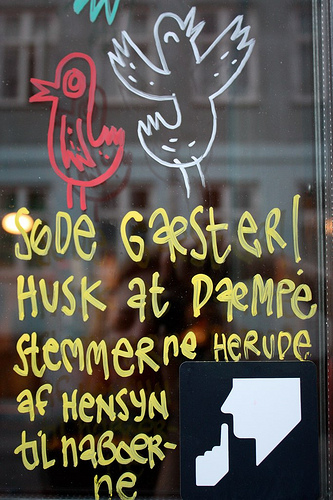 SØDE GÆSTER!
HUSK at DÆMPE
stemmerne HERUDE
af HENSYN
til naboer-
ne